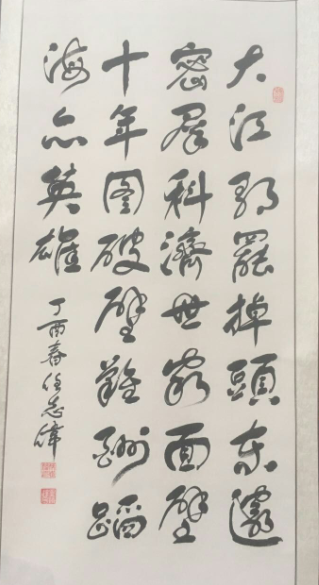 大江歌罷掉頭东邃
密羣科濟世穷面壁
十年图破壁難酬蹈
海亦英雄
丁酉春任志